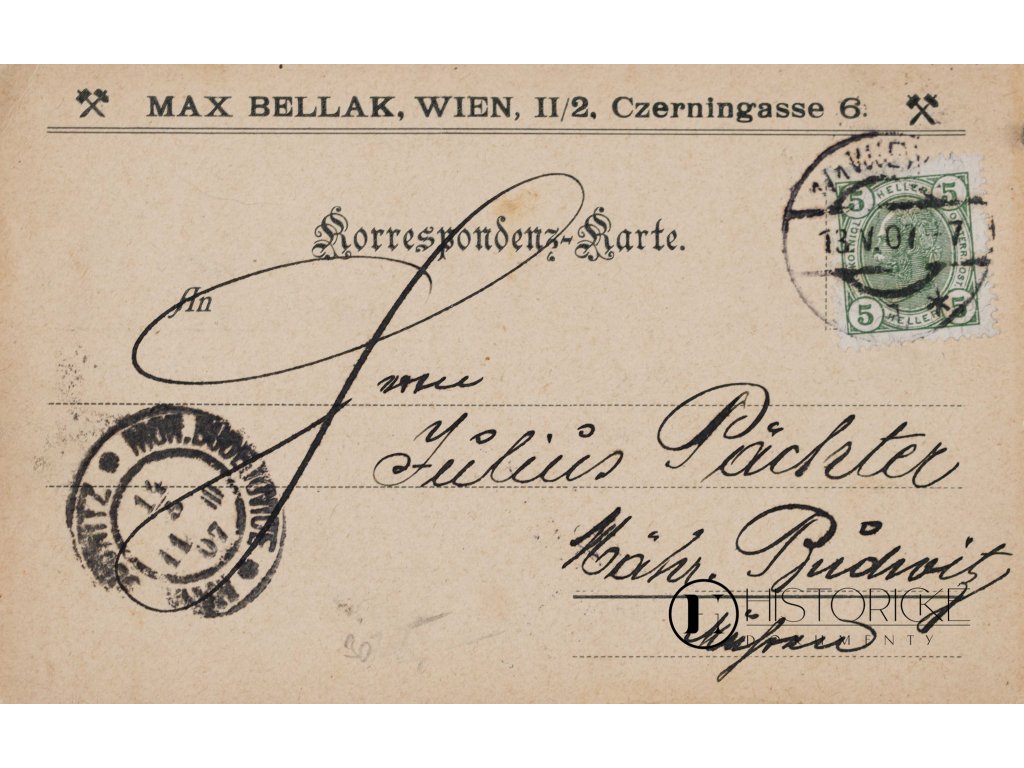 MAX BELLAK, WIEN, II/2. Czerningasse 6.
Korrespondenz-Karte.
WIEN
13.V.07
5 HELLER 5
5 HELLER 5
An
Herrn
Julius Pächter
MÄHR. BUDWITZ
14 5 07
11
Mähr. Budwitz
Mähren
HISTORICKÉ
DOKUMENTY